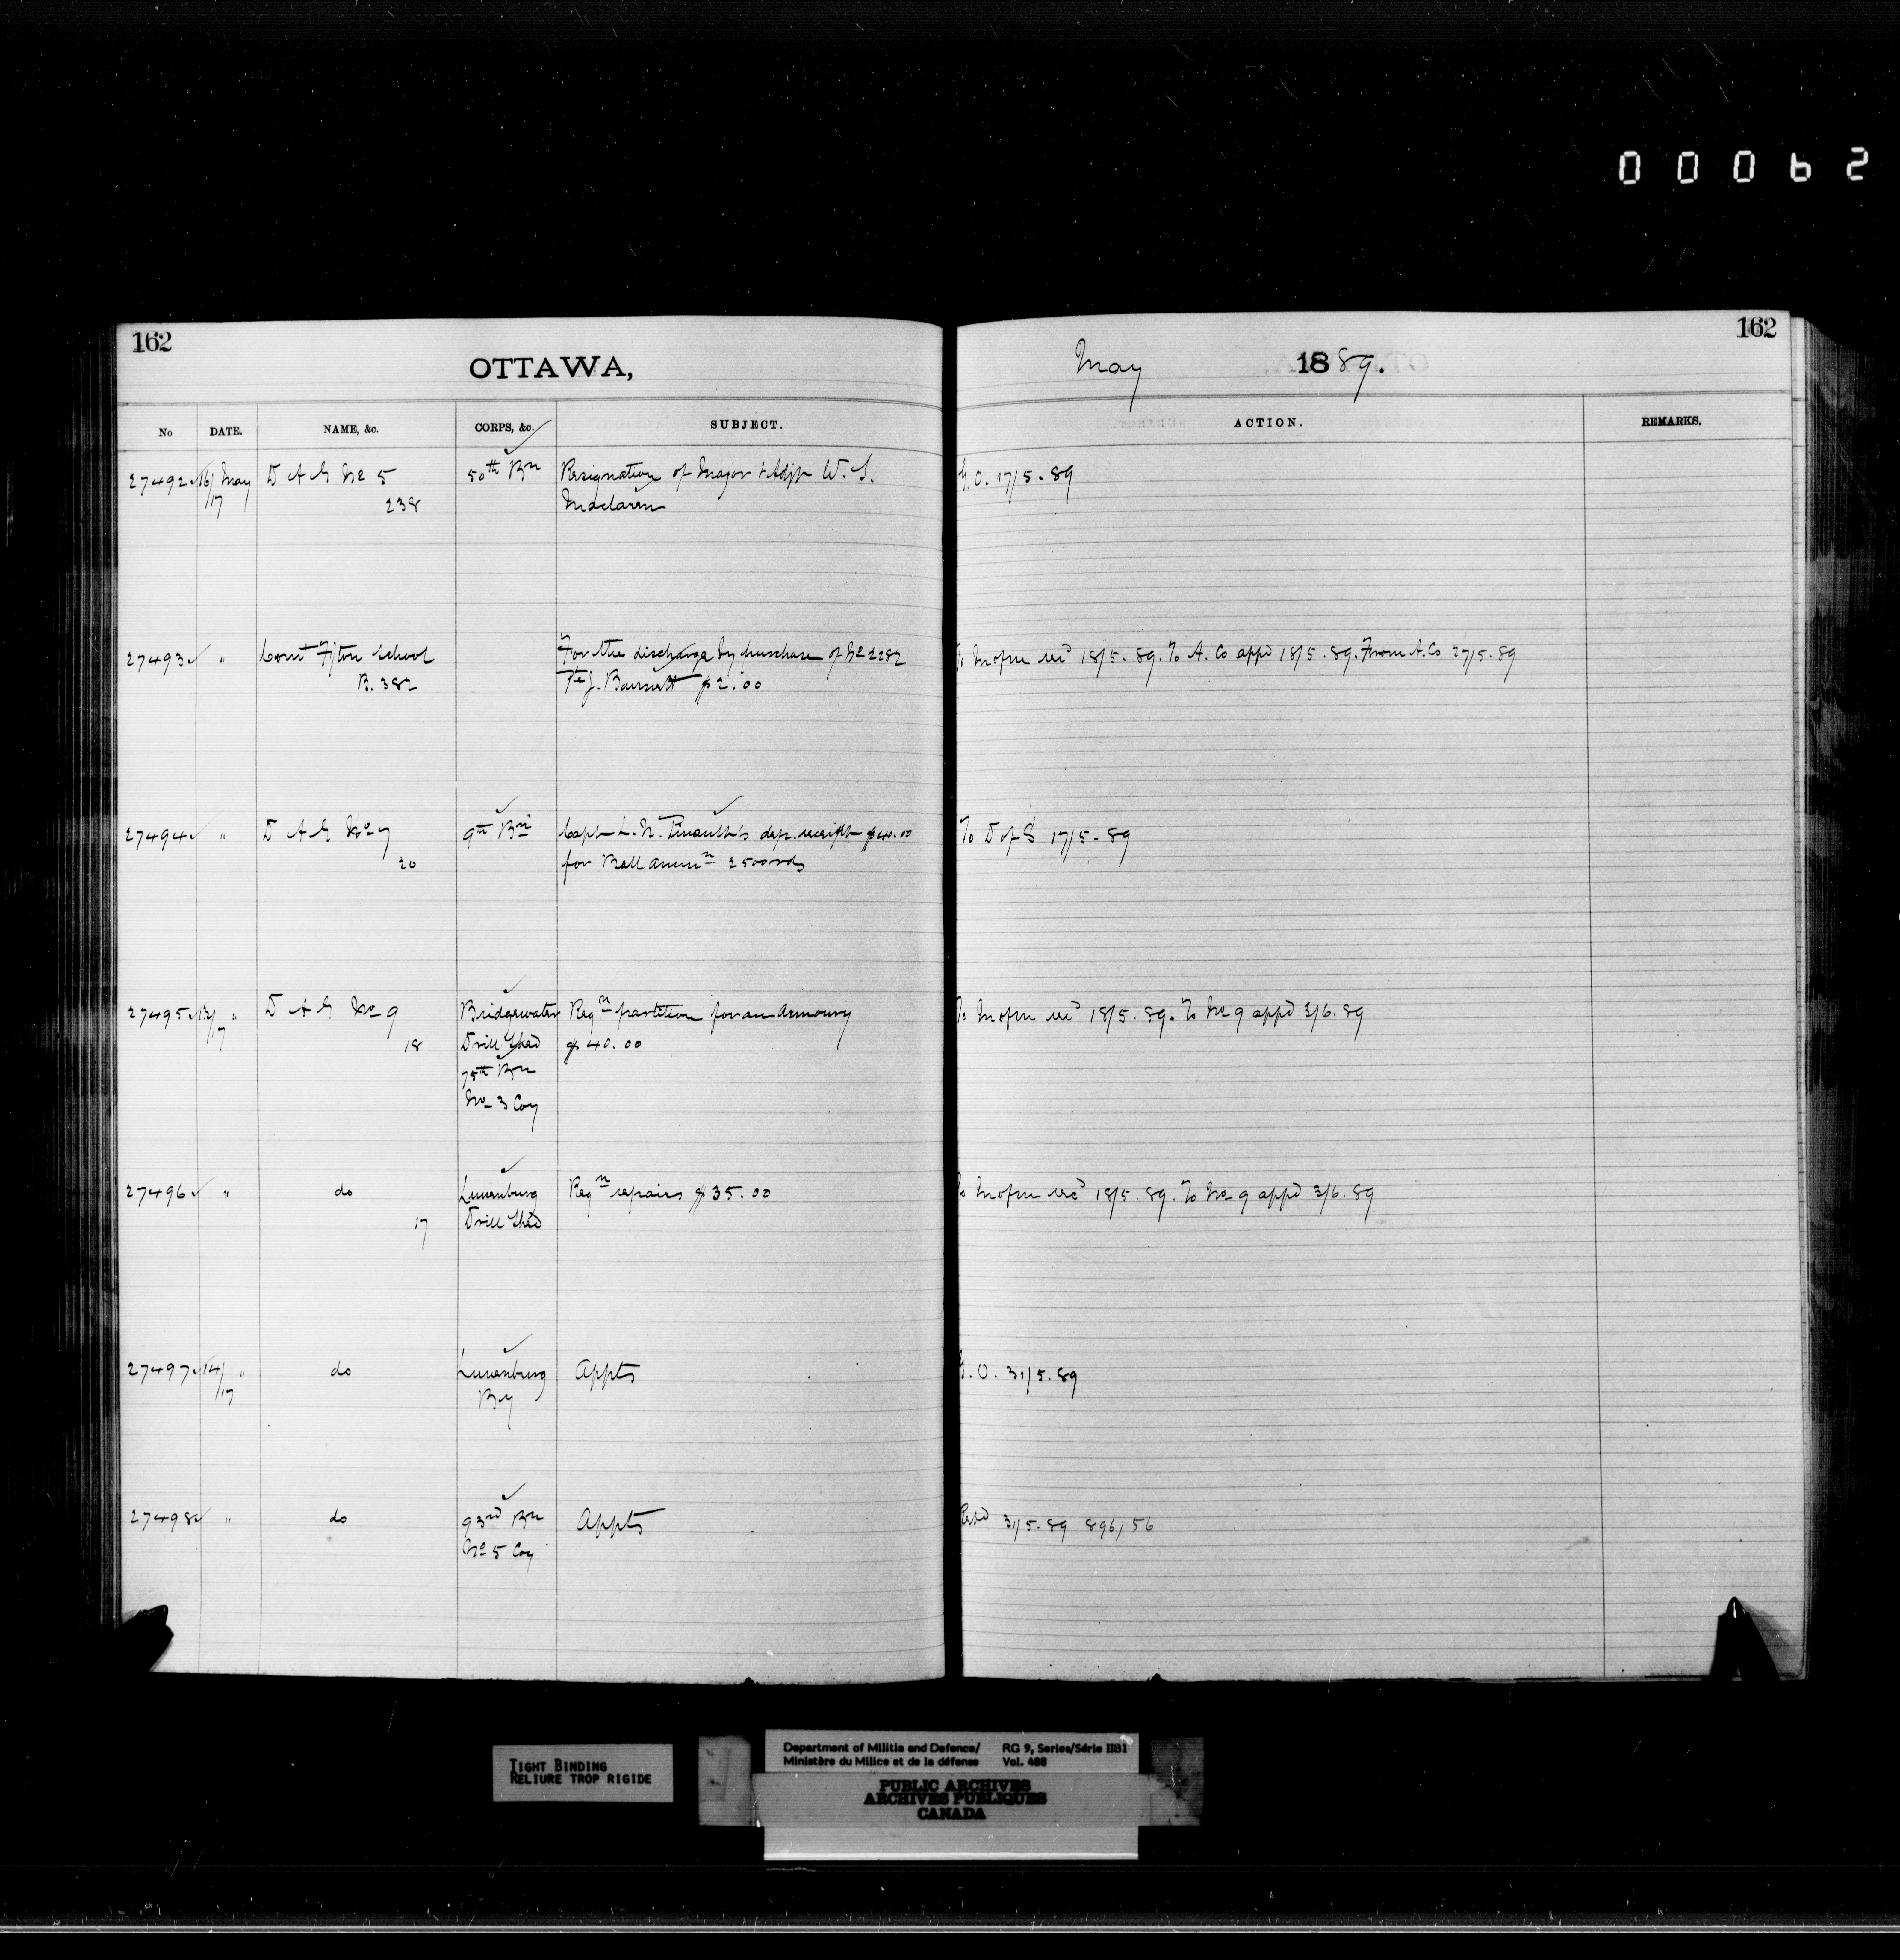 00062
162
OTTAWA,
May 1889.
162
No DATE. NAME, &c. CORPS, &c. SUBJECT. ACTION. REMARKS.
27492 16/17 May D A G No 5 50th Bn Resignation of Major & Adjt W. S. G.O. 17/5.89
238 Maclaren
27493 " Comt F/ton School For the discharge by purchase of No 2282 To Insfm recd 18/5.89. To A. Co appd 18/5.89. From A. Co 27/5.89
B. 382 Pte J. Barnett $2.00
27494 " D A G No 7 9th Bn Capt L. N. Pinault's dep. receipt $40.00 To D of S 17/5-89
20 for Ball ammn 2500 rds
27495 13/17 " D A G No 9 Bridgewater Reqn partition for an Armoury To Insfm recd 18/5.89. To No 9 appd 3/6.89
18 Drill Shed $40.00
75th Bn
No 3 Coy
27496 " do Lunenburg Reqn repairs $35.00 To Insfm recd 18/5.89. To No 9 appd 3/6.89
17 Drill Shed
27497 14/17 " do Lunenburg Appts G.O. 31/5.89
By
27498 " do 93rd Bn Appts 31/5.89 896/56
No 5 Coy
TIGHT BINDING
RELIURE TROP RIGIDE
Department of Militia and Defence/ RG 9, Series/Série IIB1
Ministère du Milice et de la défense Vol. 488
PUBLIC ARCHIVES
ARCHIVES PUBLIQUES
CANADA